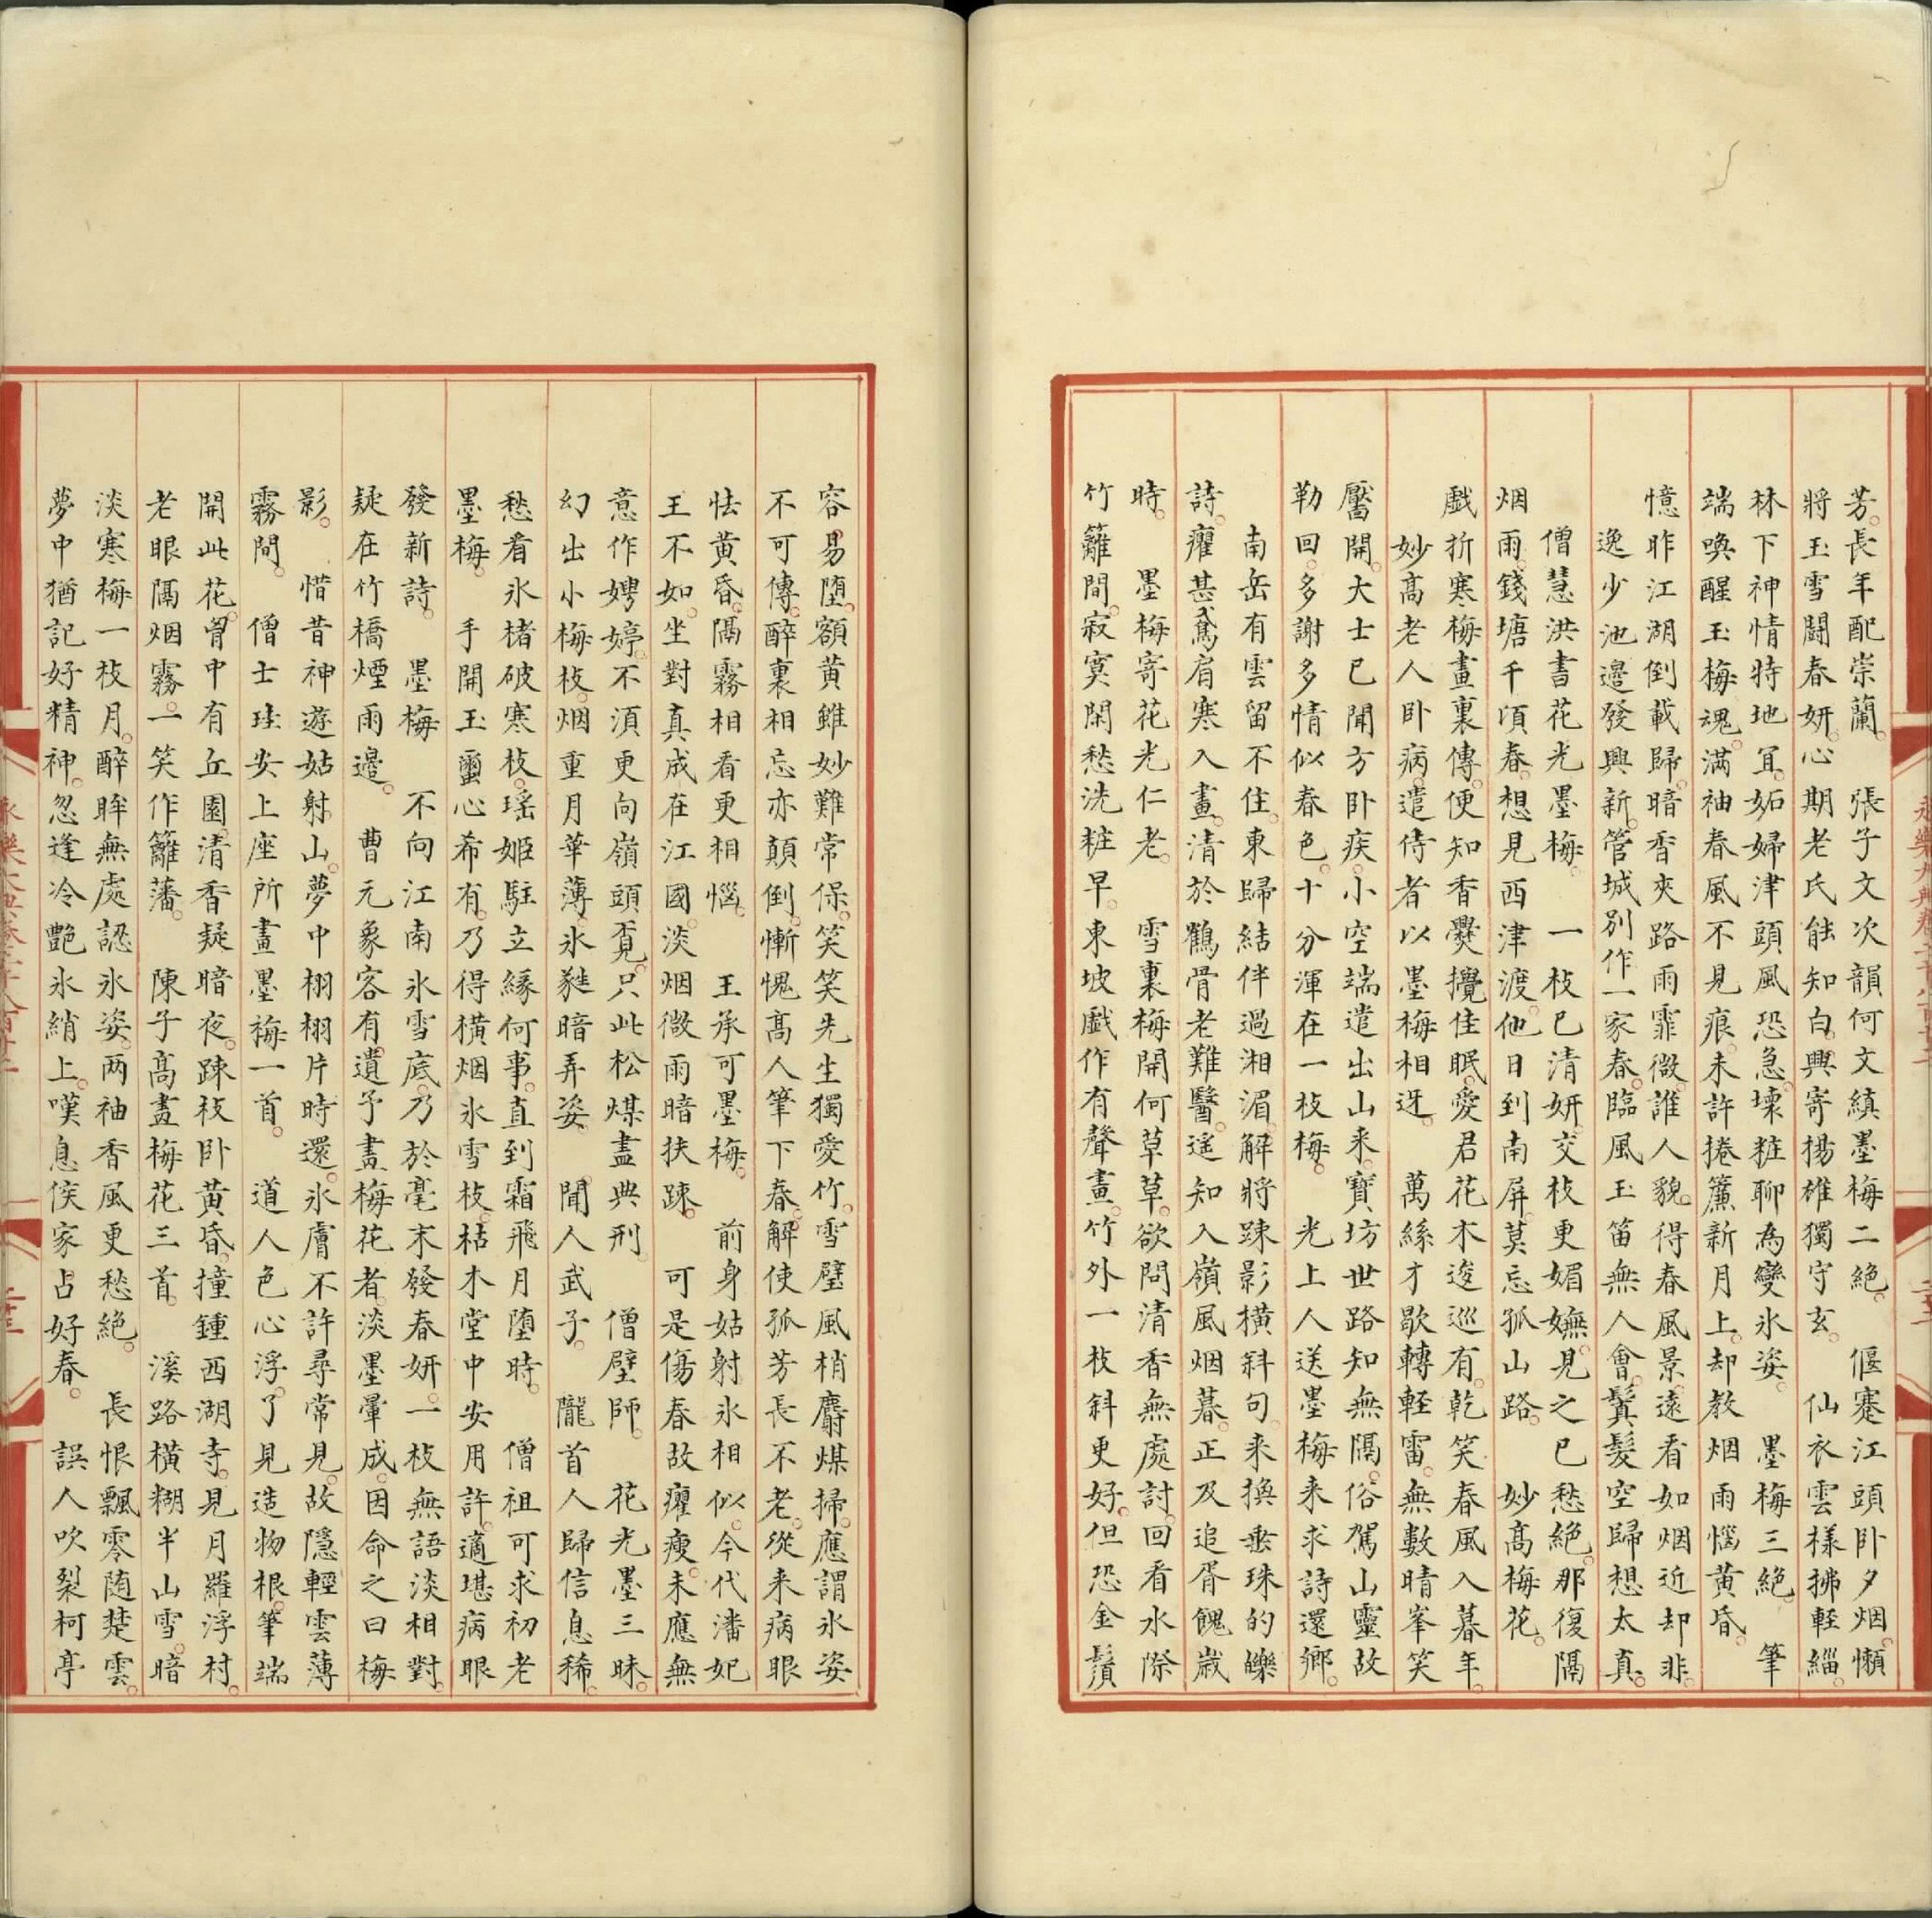 芳。長年配崇蘭。　張子文次韻何文縝墨梅二絕。　偃蹇江頭卧夕烟。懶
將玉雪鬪春妍。心期老氏能知白。興寄揚雄獨守玄。　仙衣雲樣拂輕緇。
林下神情特地冝。妬婦津頭風恐急。壞粧聊為變氷姿。　墨梅三絕。　筆
端喚醒玉梅魂。滿袖春風不見痕。未許捲簾新月上。却教烟雨惱黄昏。
憶昨江湖倒載歸。暗香夾路雨霏微。誰人貌得春風景。遠看如烟近却非。
逸少池邊發興新。管城別作一家春。臨風玉笛無人會。鬒髮空歸想太真。
僧慧洪書花光墨梅。　一枝已清妍。交枝更媚嫵。見之已愁絕。那復隔
烟雨。錢塘千頃春。想見西津渡。他日到南屏。莫忘孤山路。　妙髙梅花。
戯折寒梅畫裏傳。便知香㸑攪佳眠。愛君花木逡巡有。乾笑春風入暮年。
妙髙老人卧病。遣侍者以墨梅相迓。　萬絲才歇轉輕雷。無數晴峯笑
靨開。大士已聞方卧疾。小空端遣出山来。寶坊世路知無隔。俗駕山靈故
勒回。多謝多情似春色。十分渾在一枝梅。　光上人送墨梅来求詩還鄉。
南岳有雲留不住。東歸結伴過湘湄。解將踈影横斜句。来換垂珠的皪
詩。癯甚鳶肩寒入畫。清於鶴骨老難醫。遥知入嶺風烟暮。正及追胥餽歲
時。　墨梅寄花光仁老。　雪裏梅開何草草。欲問清香無處討。回看水際
竹籬間。寂寞閑愁洗粧早。東坡戯作有聲畫。竹外一枝斜更好。但恐金鬚
容易墮。額黄雖妙難常保。笑笑先生獨愛竹。雪壁風梢麝煤掃。應謂氷姿
不可傳。醉裏相忘亦顛倒。慚愧髙人筆下春。解使孤芳長不老。從来病眼
怯黄昏。隔霧相看更相惱。　王承可墨梅。　前身姑射氷相似。今代潘妃
王不如。坐對真成在江國。淡烟微雨暗扶踈。　可是傷春故癯瘦。未應無
意作娉婷。不湏更向嶺頭覔。只此松煤盡典刑。　僧壁師。　花光墨三昧。
幻出小梅枝。烟重月華薄。氷㽔暗弄姿。　聞人武子。　隴首人歸信息稀。
愁看氷楮破寒枝。瑶姬駐立緣何事。直到霜飛月墮時。　僧祖可求初老
墨梅。　手開玉璽心希有。乃得横烟氷雪枝。枯木堂中安用許。適堪病眼
發新詩。　墨梅　不向江南氷雪底。乃於毫末發春妍。一枝無語淡相對。
疑在竹橋煙雨邉。　曹元象容有遺予畫梅花者。淡墨暈成。因命之曰梅
影。　惜昔神遊姑射山。夢中栩栩片時還。氷膚不許尋常見。故隱輕雲薄
霧間。　僧士珪安上座所畫墨梅一首。　道人色心浮。了見造物根。筆端
開此花。胷中有丘園。清香疑暗夜。踈枝卧黄昏。撞鍾西湖寺。見月羅浮村。
老眼隔烟霧。一笑作籬藩。　陳子髙畫梅花三首。　溪路横糊半山雪。暗
淡寒梅一枝月。醉眸無處認氷姿。两袖香風更愁絕。　長恨飄零随楚雲。
夢中猶記好精神。忽逢冷艷氷綃上。嘆息侯家占好春。　誤人吹裂柯亭